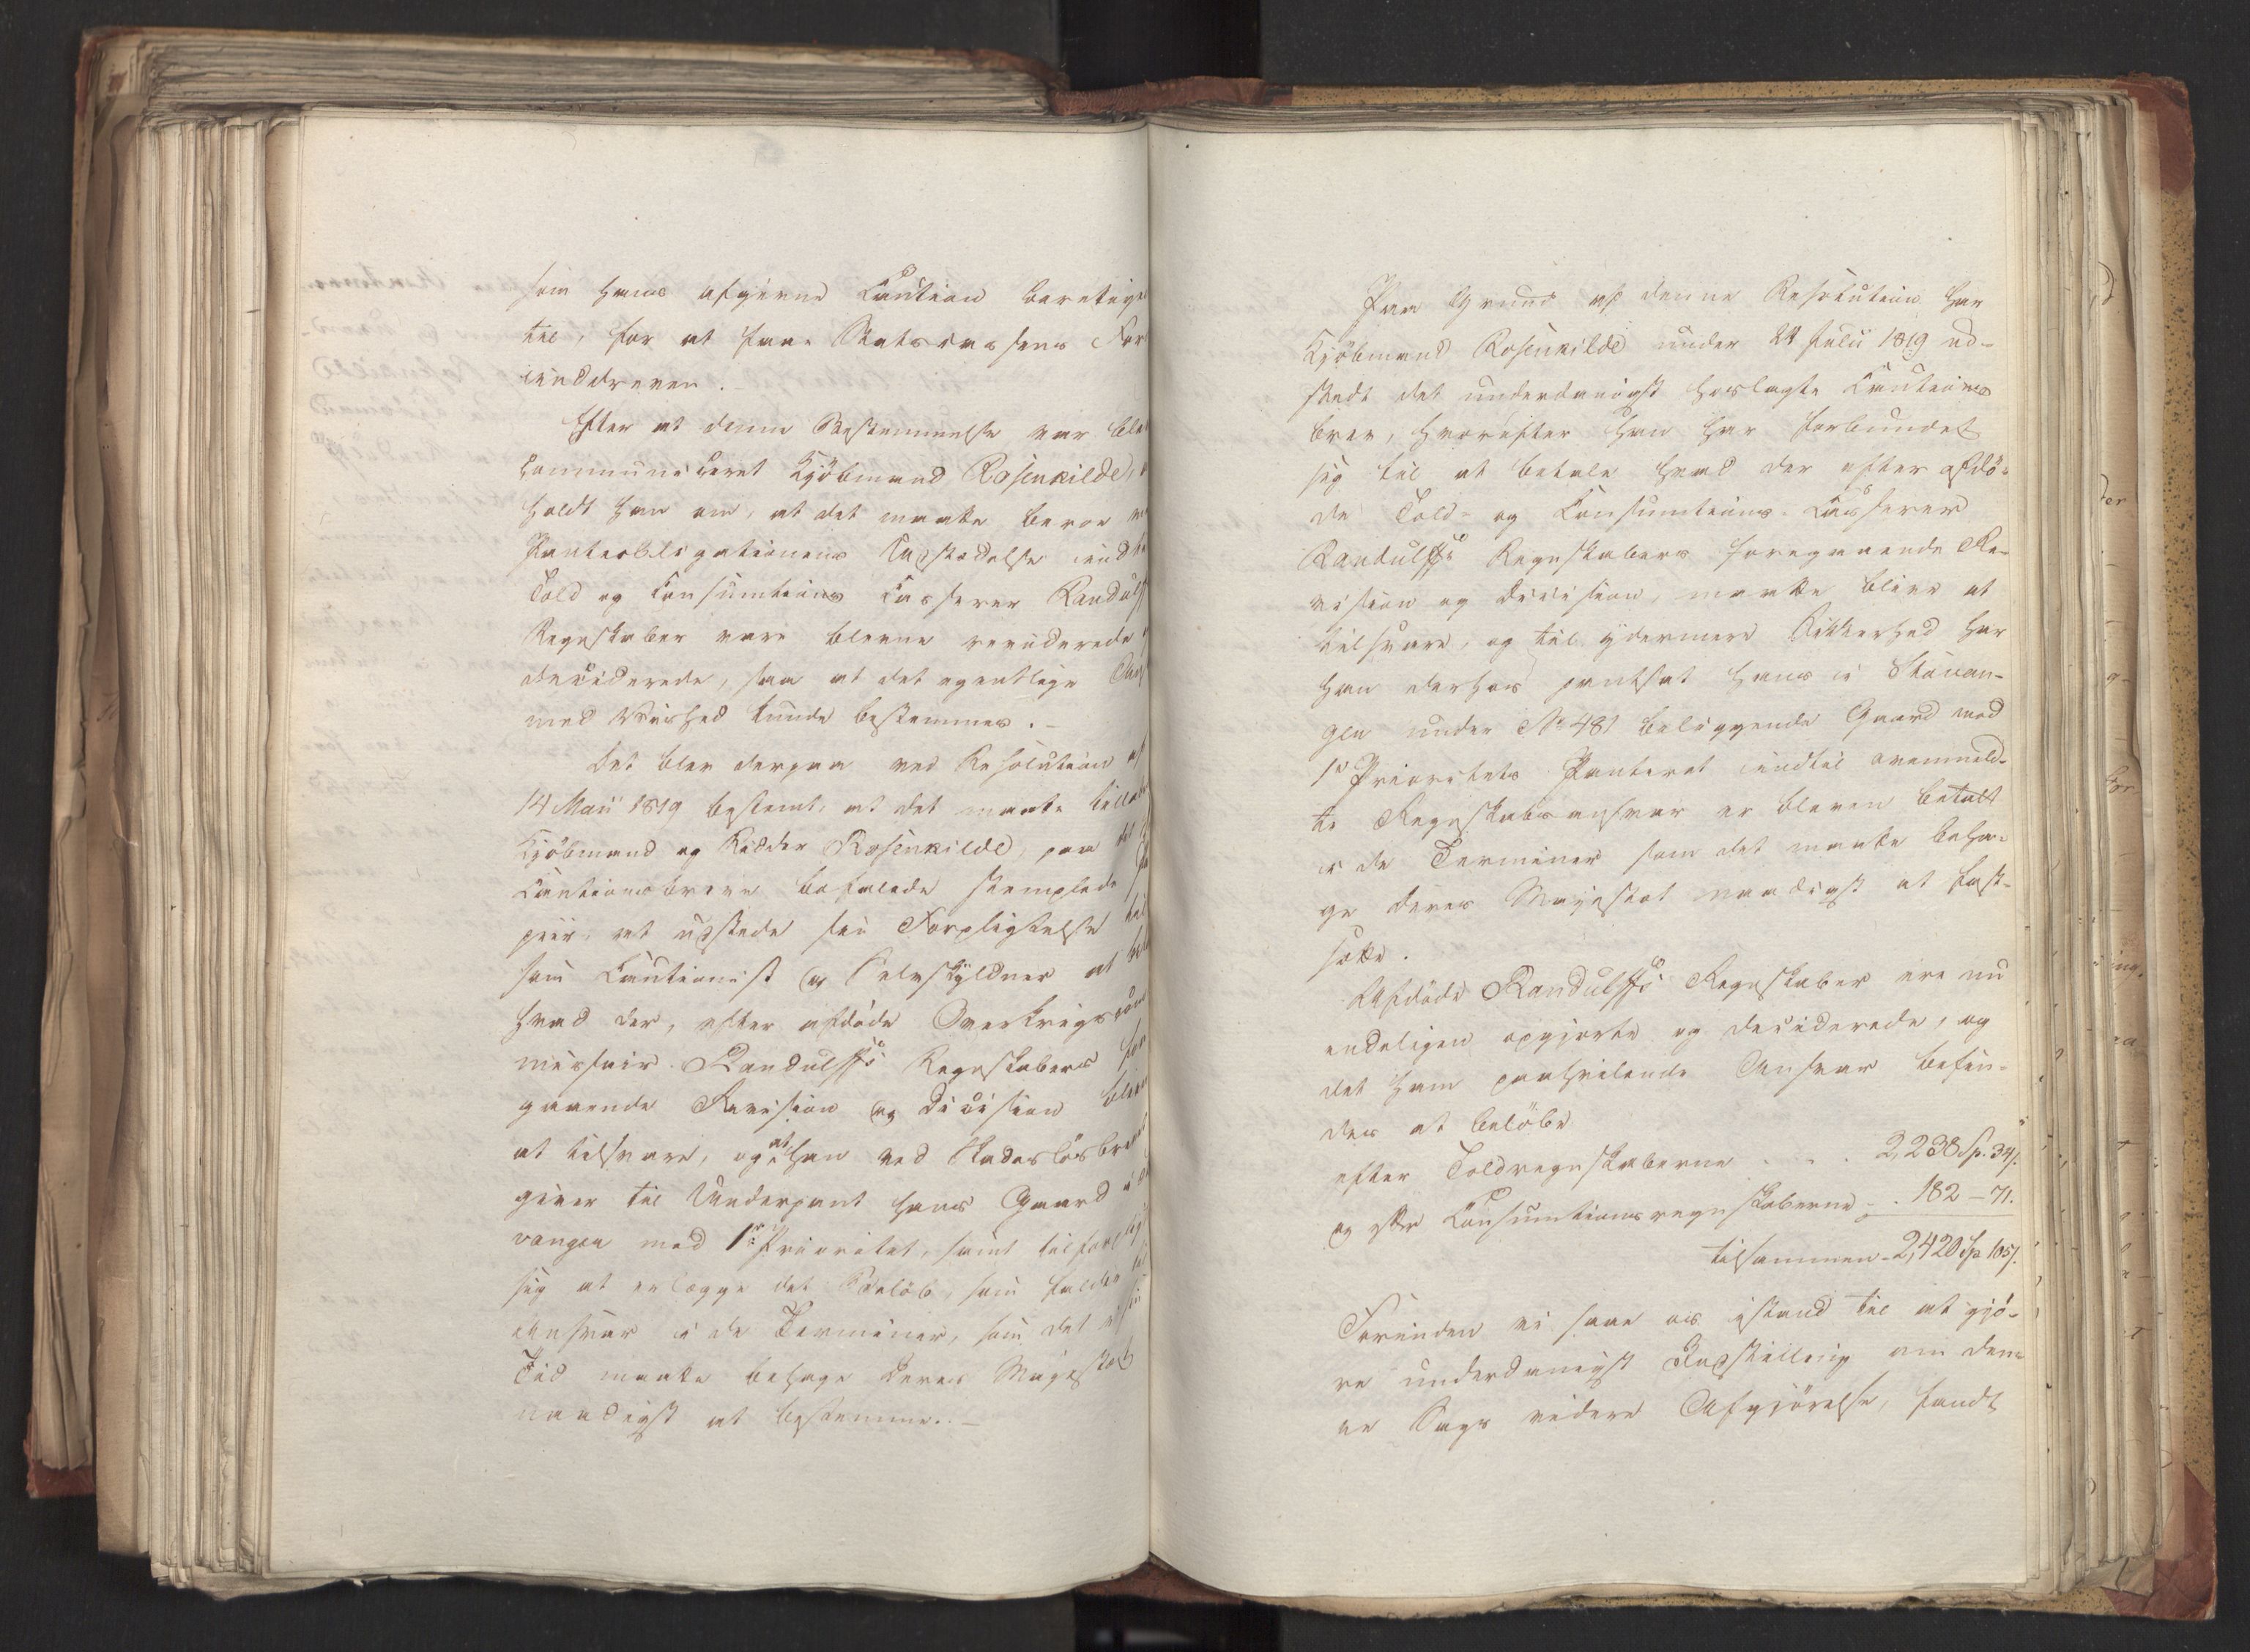 som hans afgivne Caution beretige
til, for at faae Statscassens For
inddreven.
Efter at denne Bestemmelse var blev
communiceret Kjöbmand Rosenkilde,
holdt han an, at det maatte beroe
Panteobligationens Udstædelse indt
Told og Consumtions Casserer Randulff
Regnskaber vare blevne reviderede
deciderede, saa at det egentlige Ans
med Vished kunde bestemmes.-
Det blev derpaa ved Resolution af
14 Maii 1819 bestemt, at det maatte tillad
Kjöbmand og Ridder Rosenkilde, paa det
Cautionsbreve befalede stemplede
piir, at udstede sin Forpligtelse til
som Cautionist og Selvskyldner at
hvad der, efter afdöde Overkrigscom
missair Randulffs Regnskabers for
gaaende Revision og Decision bliver
at tilsvare, og at han ved Skadeslösbrev
giver til Underpant hans Gaard i
vanger med 1ste Prioritet, samt tilforpl
sig at erlægge det Belöb, som falder
Ansvar i de Terminer, som det
Tid maatte behage Deres Majestæt
naadigst at bestemme.-
Paa Grund af denne Resolution har
Kjöbmand Rosenkilde under 24 Julii 1819 ud-
stedt det underdanigst hoslagte Cautions
brev, hvorefter han har forbundet
sig til at betale hvad der efter afdö-
de Told- og Consumtions-Casserer
Randulffs Regnskabers foregaaende Re-
vision og Decision, maatte blive at
tilsvare, og til ydermere Sikkerhed har
han derhos pantsat hans i Stavan-
ger under No 481 beliggende Gaard med
1ste Prioritets Panteret indtil ovenmeld-
te Regnskabsansvar er bleven betalt
i de Terminer som det maatte beha-
ge Deres Majestæt naadigst at fast-
sætte.
Afdöde Randulffs Regnskaber ere nu
endeligen opgjorte og deciderede, og
det ham paahvilende Ansvar befin-
des at belöbe
efter Toldregnskaberne . . . 2,238 Sp. 34 s.
og efter Consumtionsregnskaberne - . 182 - 71.
tilsammen - 2,420 Sp 105 s.
Forinden vi saae os istand til at gjö-
re underdanigst Indstilling om den-
ne Sags videre Afgjörelse, fandt